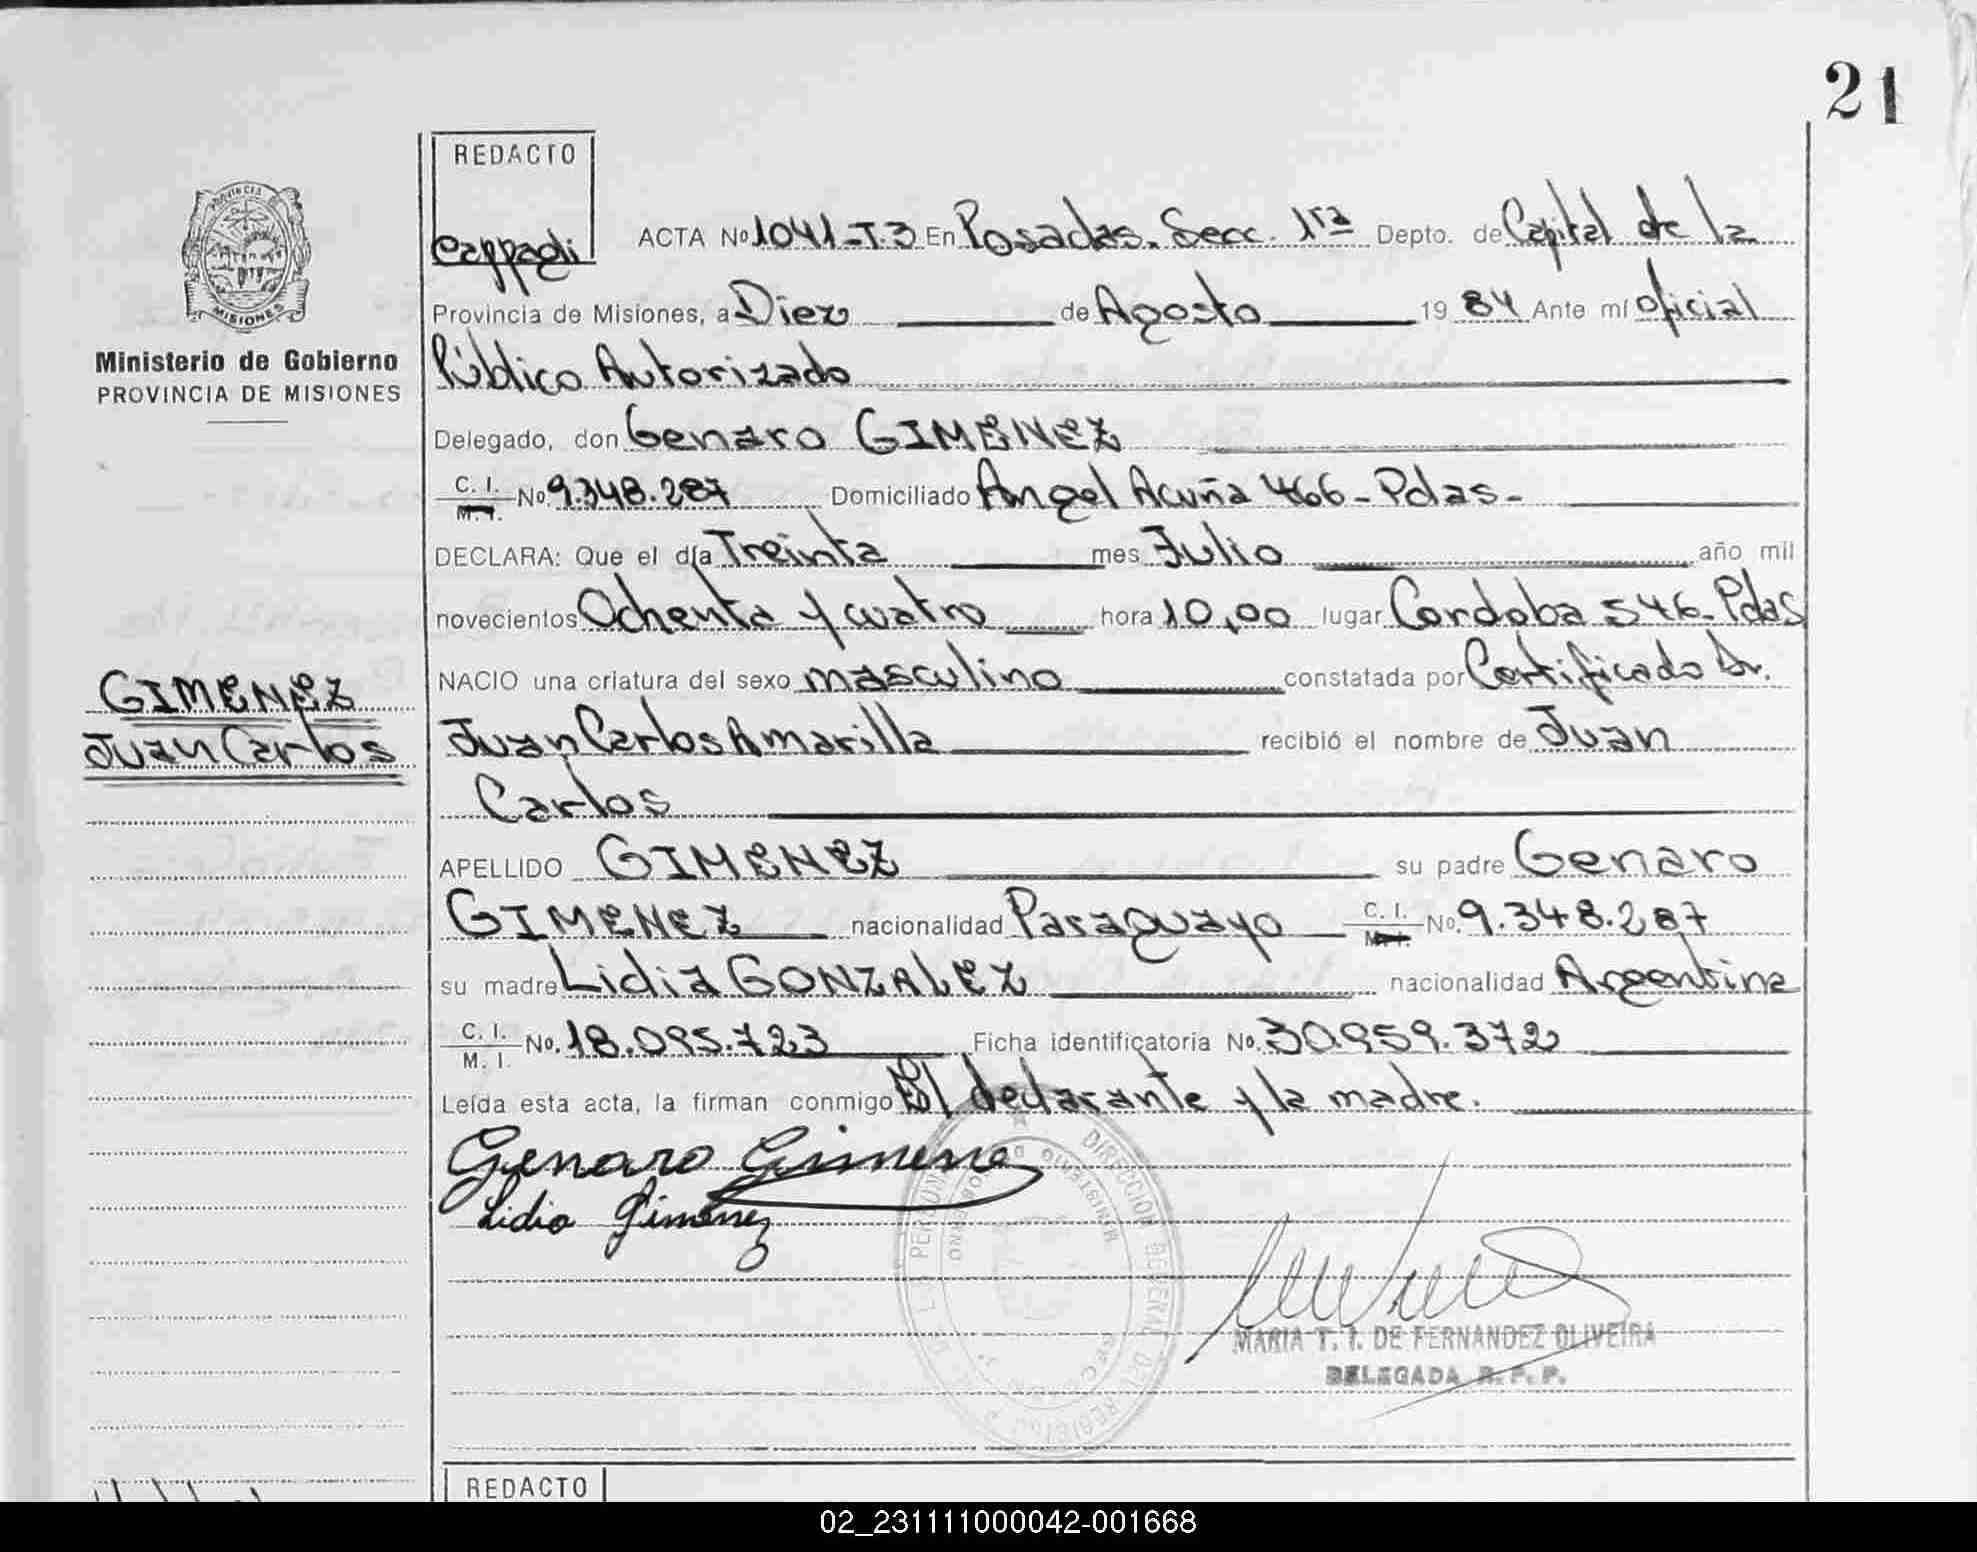 21
REDACTO
Cappadi
ACTA Nº 1041-T3 En Posadas. Secc. 1ra Depto. de Capital de la
Provincia de Misiones, a Diez de Agosto 19 84 Ante mí Oficial
Público Autorizado
Delegado, don Genaro GIMENEZ
C. I. M. I. No 9.348.287 Domiciliado Angel Acuña 466 - Pdas -
DECLARA: Que el día Treinta mes Julio año mil
novecientos Ochenta y cuatro hora 10,00 lugar Cordoba 546- Pdas
NACIO una criatura del sexo masculino constatada por Certificado Dr.
Juan Carlos Amarilla recibió el nombre de Juan
Carlos
APELLIDO GIMENEZ su padre Genaro
GIMENEZ nacionalidad Paraguayo C. I. M. I. No. 9.348.287
su madre Lidia GONZALEZ nacionalidad Argentina
C. I. M. I. No. 18.095.723 Ficha identificatoria No. 30.959.372
Leída esta acta, la firman conmigo El declarante y la madre.
Genaro Gimenez
Lidia Gimenez
MARIA T. I. DE FERNANDEZ OLIVEIRA
DELEGADA R. P. P.
DIRECCION GENERAL DEL REGISTRO P. DE LAS PERSONAS
MINISTERIO DE GOBIERNO
PROVINCIA
MISIONES
Ministerio de Gobierno
PROVINCIA DE MISIONES
GIMENEZ
Juan Carlos
REDACTO
02_231111000042-001668